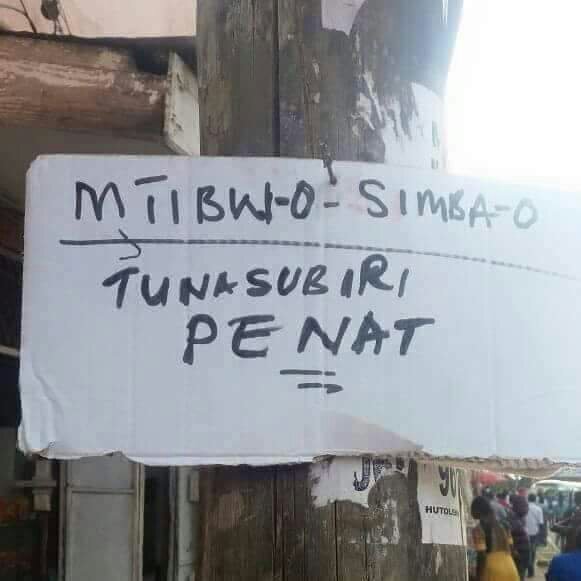 MTIBWI-O-SIMBA-O
TUNASUBIRI
PENAT
HUTOLEW